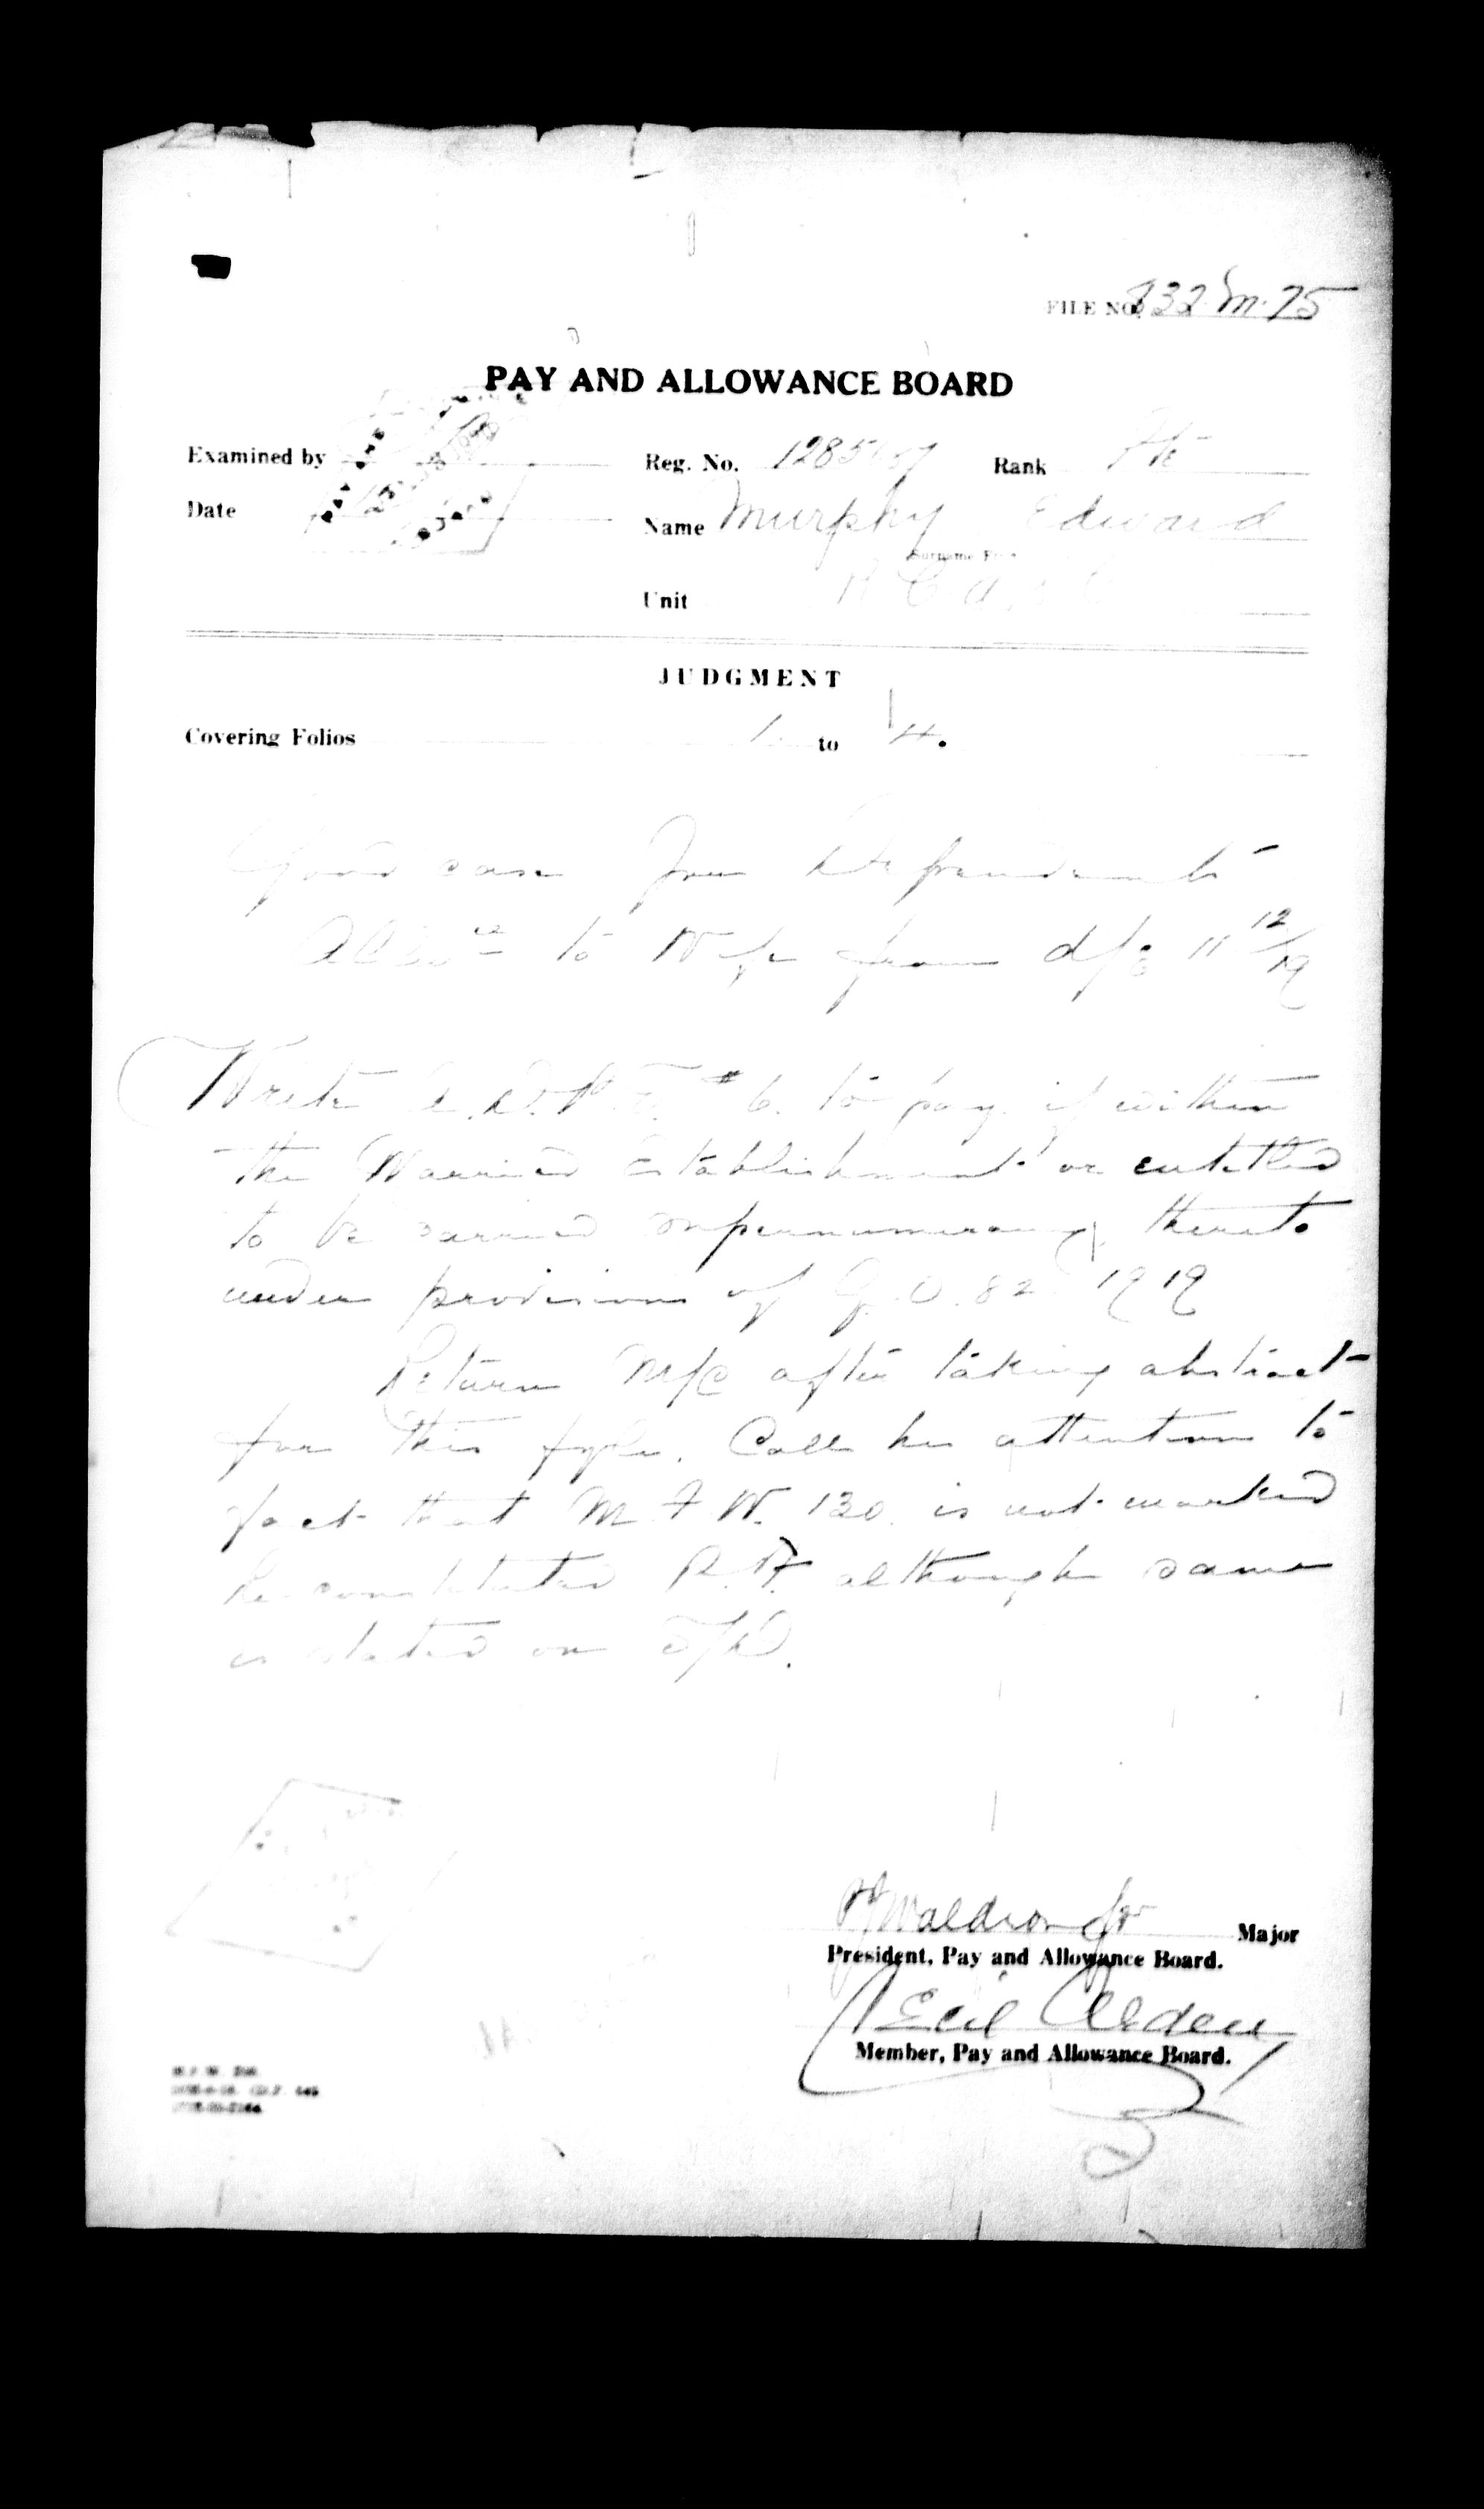 FILE NO. 332-M-75
PAY AND ALLOWANCE BOARD
Examined by
Reg. No. Rank Pte
Date
Name Murphy Edward
Surname First
Unit
JUDGMENT
Covering Folios 1 to 4.
Good case for Dependents
Allowce to Wife from d/e 11 12/19
Write A.D.P.S. #6. to pay if within
the Married Establishment or entitled
to be carried supernumerary thereto
under provisions of G.O. 82 1919
Return M/C after taking abstract
for this fyle. Call his attention to
fact that M.F.W. 130. is not marked
Re-constituted P.F. although same
is stated on
Waldron Major
President, Pay and Allowance Board.
Cecil
Member, Pay and Allowance Board.